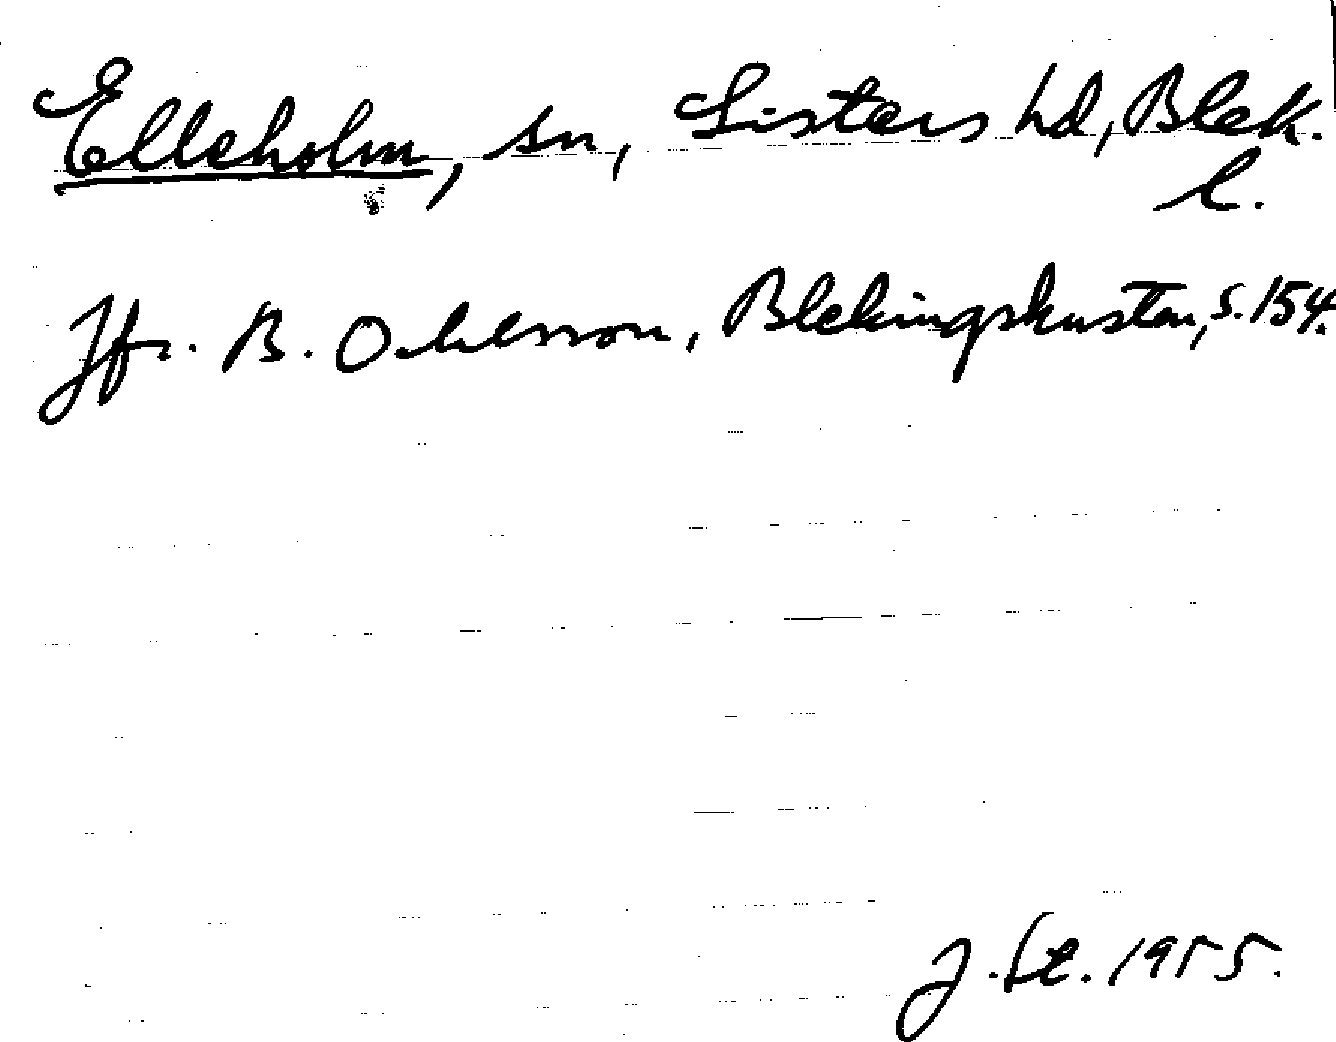 Elleholm, sn, Listers hd, Blek.
l.
Jfr. B. Ohlsson, Blekingskusten, s. 154.
J. St. 1955.